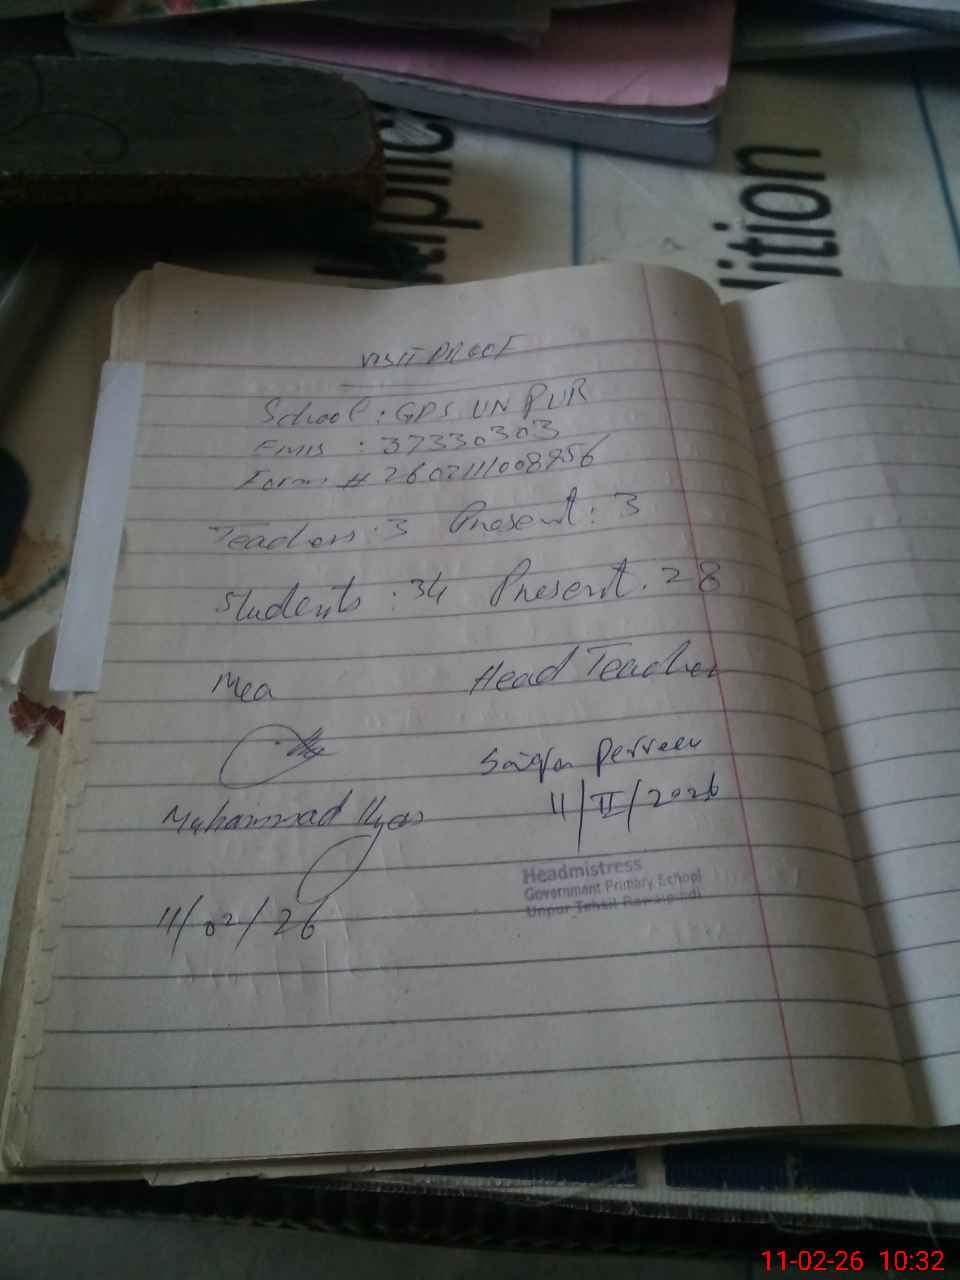 ltiplic
lition
VISIT PROOF
School : GPS UNPUR
EMIS : 37330303
Form # 260211008956
Teachers : 3 Present : 3
Students : 34 Present . 28
Mea Head Teacher
Saiqa Perveen
Muhammad Ilyas 11/II/2026
Headmistress
Government Primary School
Unpur Tehsil Rawalpindi
11/02/26
11-02-26 10:32